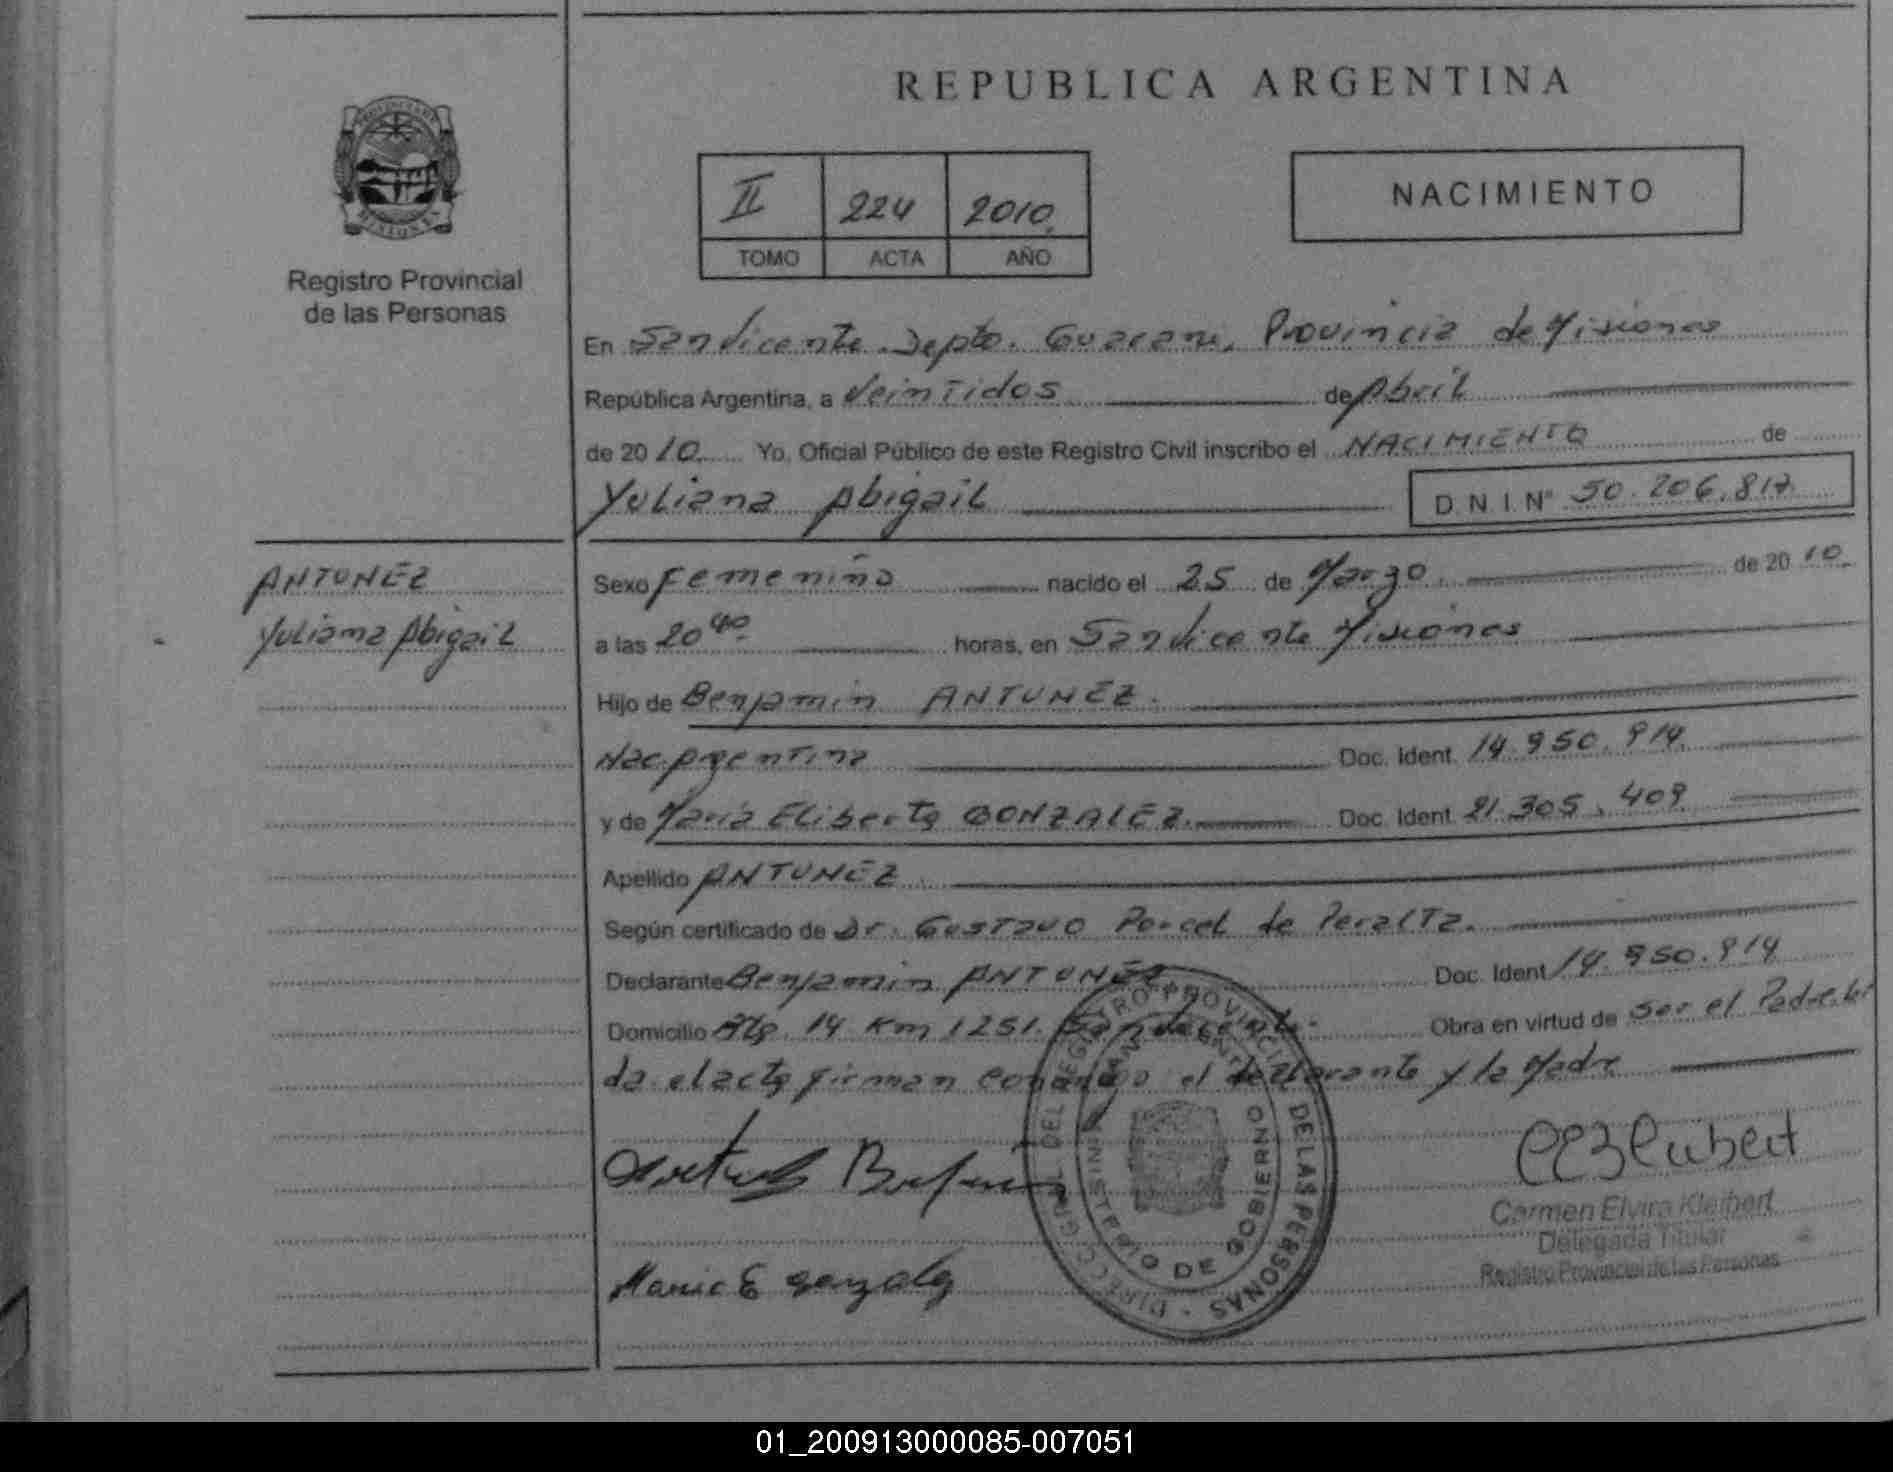 REPUBLICA ARGENTINA
PROVINCIA DE
MISIONES
Registro Provincial
de las Personas
II 224 2010
TOMO ACTA AÑO
NACIMIENTO
En San Vicente. Depto. Guarani, Provincia de Misiones
República Argentina, a Veintidos de Abril
de 2010 Yo, Oficial Público de este Registro Civil inscribo el NACIMIENTO de
Yuliana Abigail D.N.I. Nº 50.206.817
ANTUNEZ
Yuliana Abigail
Sexo Femenino nacido el 25 de Marzo de 2010
a las 20 horas, en San Vicente Misiones
Hijo de Benjamin ANTUNEZ.
Nac. Argentina Doc. Ident. 14.950.914
y de Maria Eliberta GONZALEZ. Doc. Ident. 21.305.409
Apellido ANTUNEZ
Según certificado de Dr. Gustavo Porcel de Peralta.
Declarante Benjamin ANTUNEZ Doc. Ident. 14.950.914
Domicilio Rta 14 Km 1251. San Vicente. Obra en virtud de ser el Padre. lei
da el acta firman conmigo el declarante y la Madre
Maria E gonzalez
Carmen Elvira Kleibert
Delegada Titular
Registro Provincial de las Personas
DIRECC GRAL DEL REGISTRO PROVINCIAL DE LAS PERSONAS
MINISTERIO DE GOBIERNO
SAN VICENTE
01_200913000085-007051